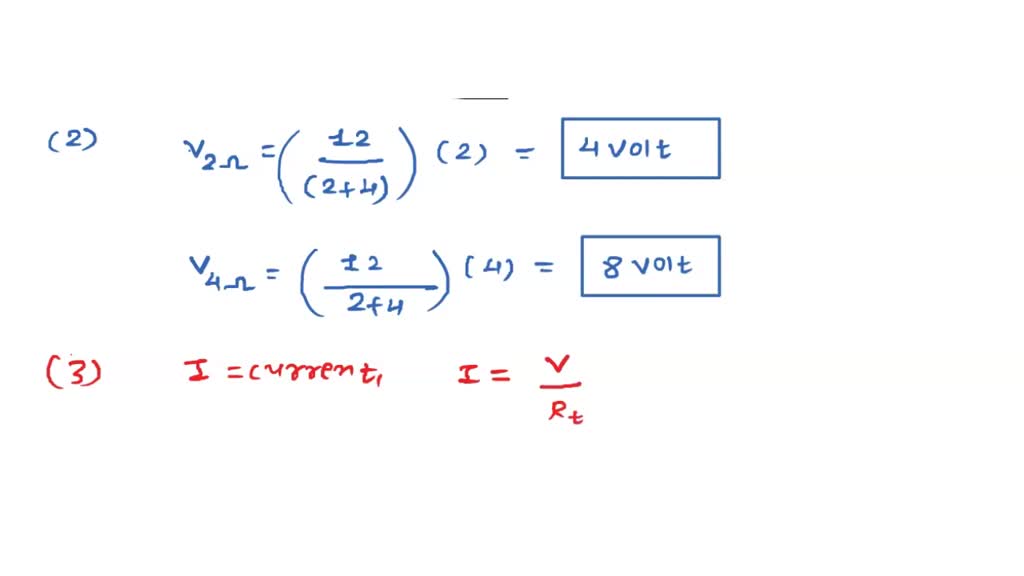 (2) V2Ω = (12/(2+4)) (2) = 4 volt
V4Ω = (12/2+4) (4) = 8 volt
(3) I = current, I = V/Rt